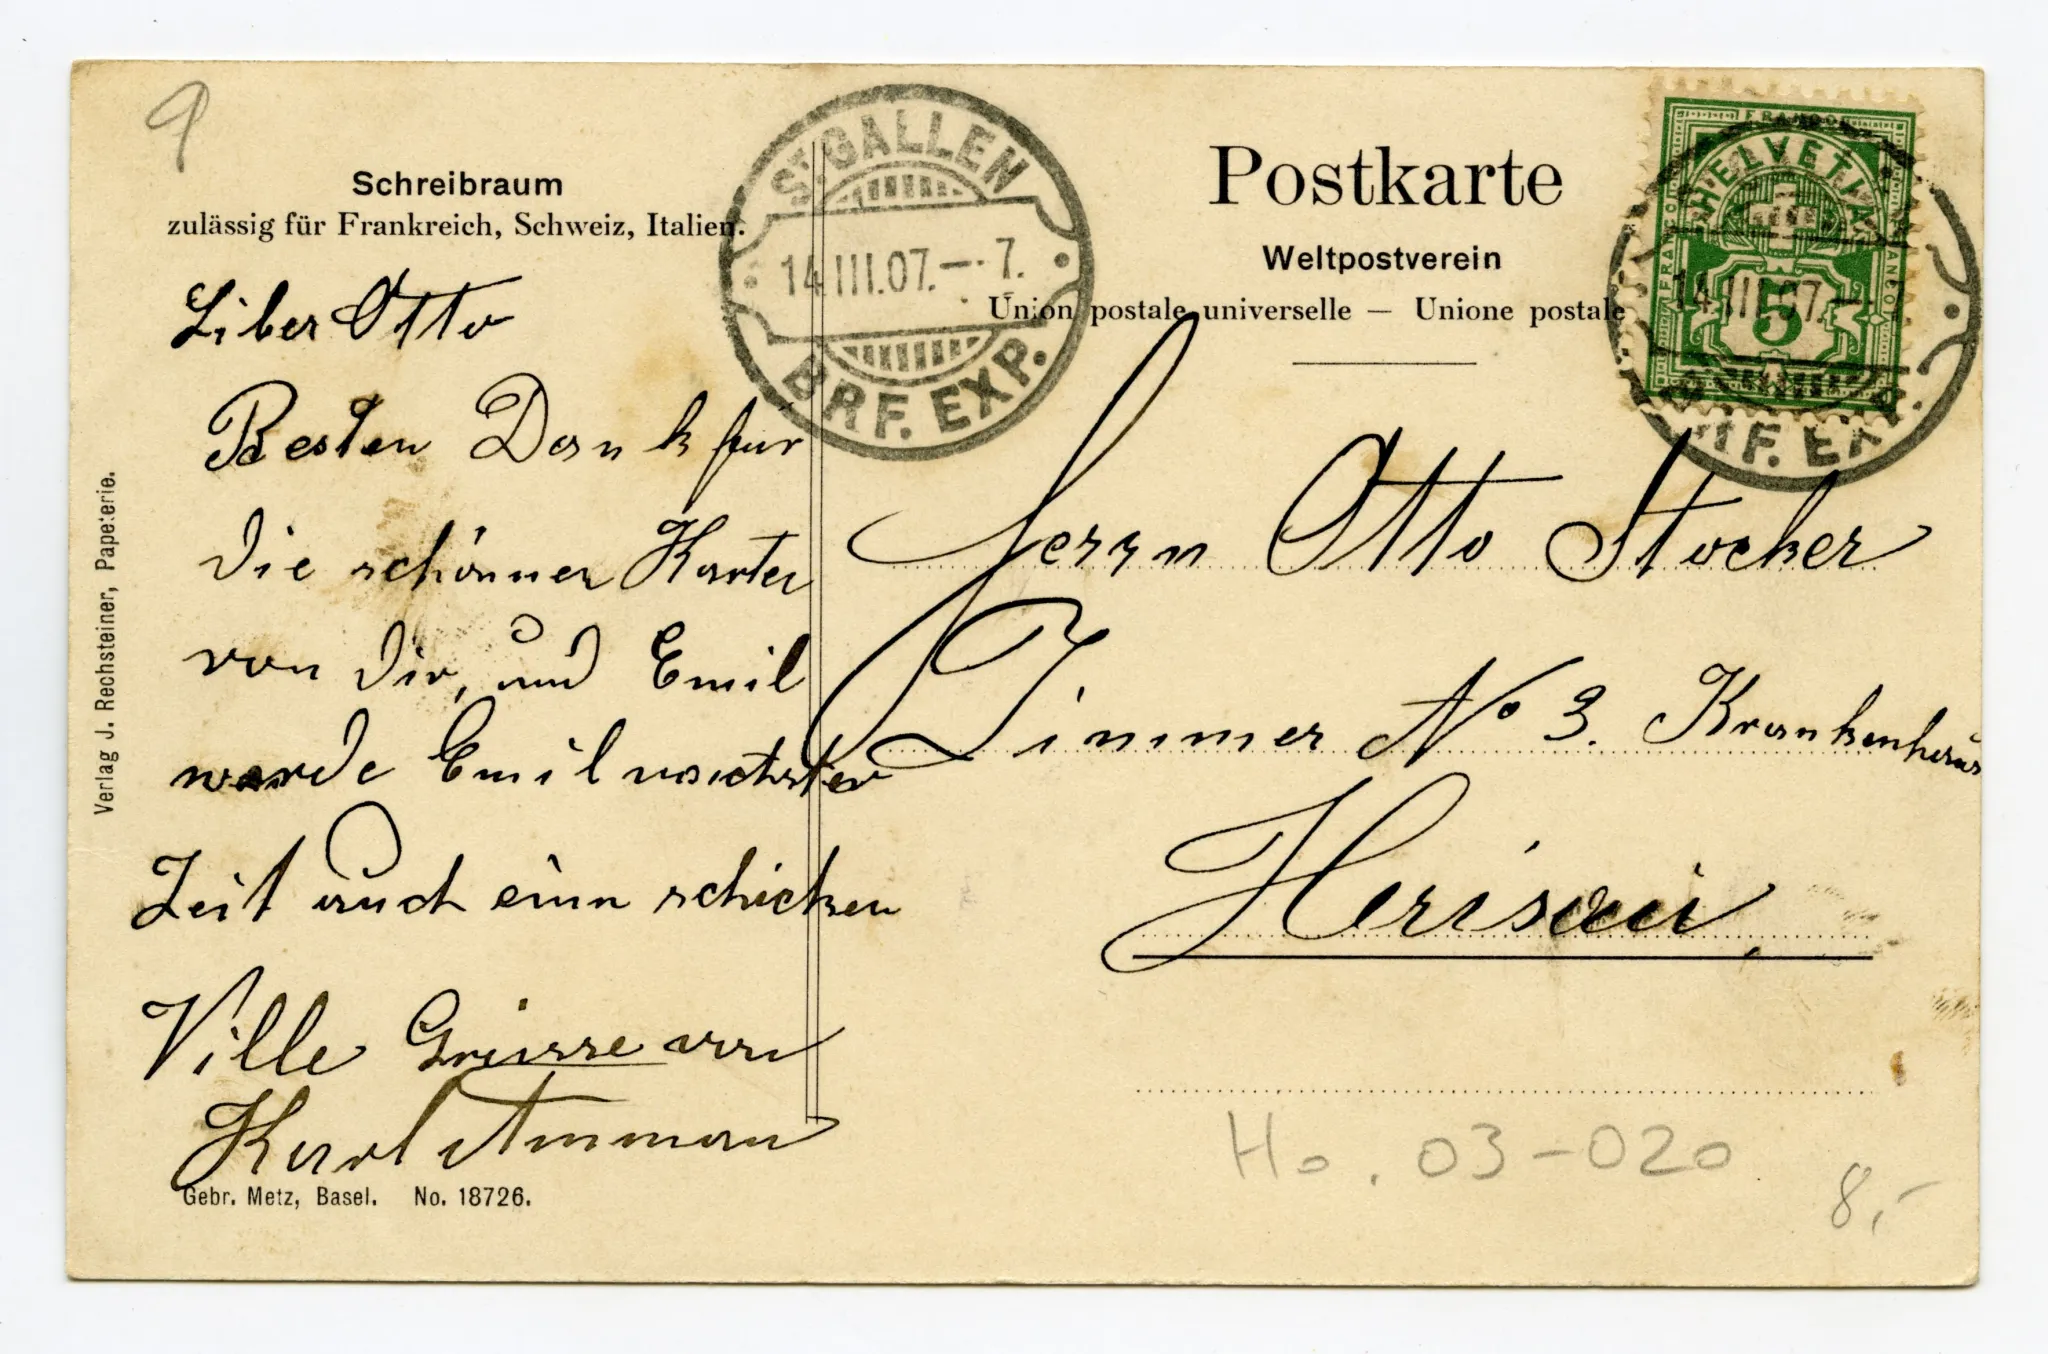 9
Schreibraum
zulässig für Frankreich, Schweiz, Italien.
Liber Otto
Besten Dank für
die schönner Karten
von dir, und Emil
werde Emil nachster
Zeit auch einn schicken
Ville Grüsse von
Karl Ammann
Gebr. Metz, Basel. No. 18726.
Verlag J. Rechsteiner, Papeterie.
ST. GALLEN
14.III.07.—7.
BRF. EXP.
Postkarte
Weltpostverein
Union postale universelle — Unione postale
FRANCO
HELVETIA
FRANCO
FRANCO
5
14.III.07.—7
BRF. EXP.
Herrn Otto Stocker
Zimmer No 3. Krankenhaus
Herisau.
Ho. 03-020
8,-